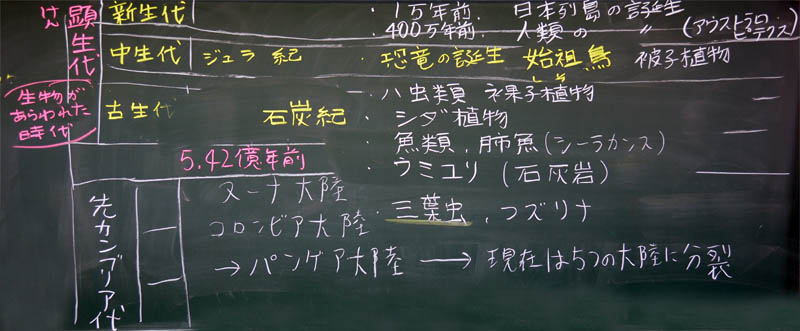 けん
顕生代
生物が
あらわれた
時代
新生代
・1万年前、日本列島の誕生
・400万年前、人類の 〃 (アウストラロ
ピテクス)
中生代 ジュラ紀 ・恐竜の誕生 始祖鳥 被子植物
古生代 石炭紀
・ハ虫類 裸子植物
・シダ植物
・魚類、肺魚(シーラカンス)
・ウミユリ (石灰岩)
・三葉虫、フズリナ
5.42億年前
先カンブリア代
ヌーナ大陸
コロンビア大陸
→パンゲア大陸 → 現在は5つの大陸に分裂